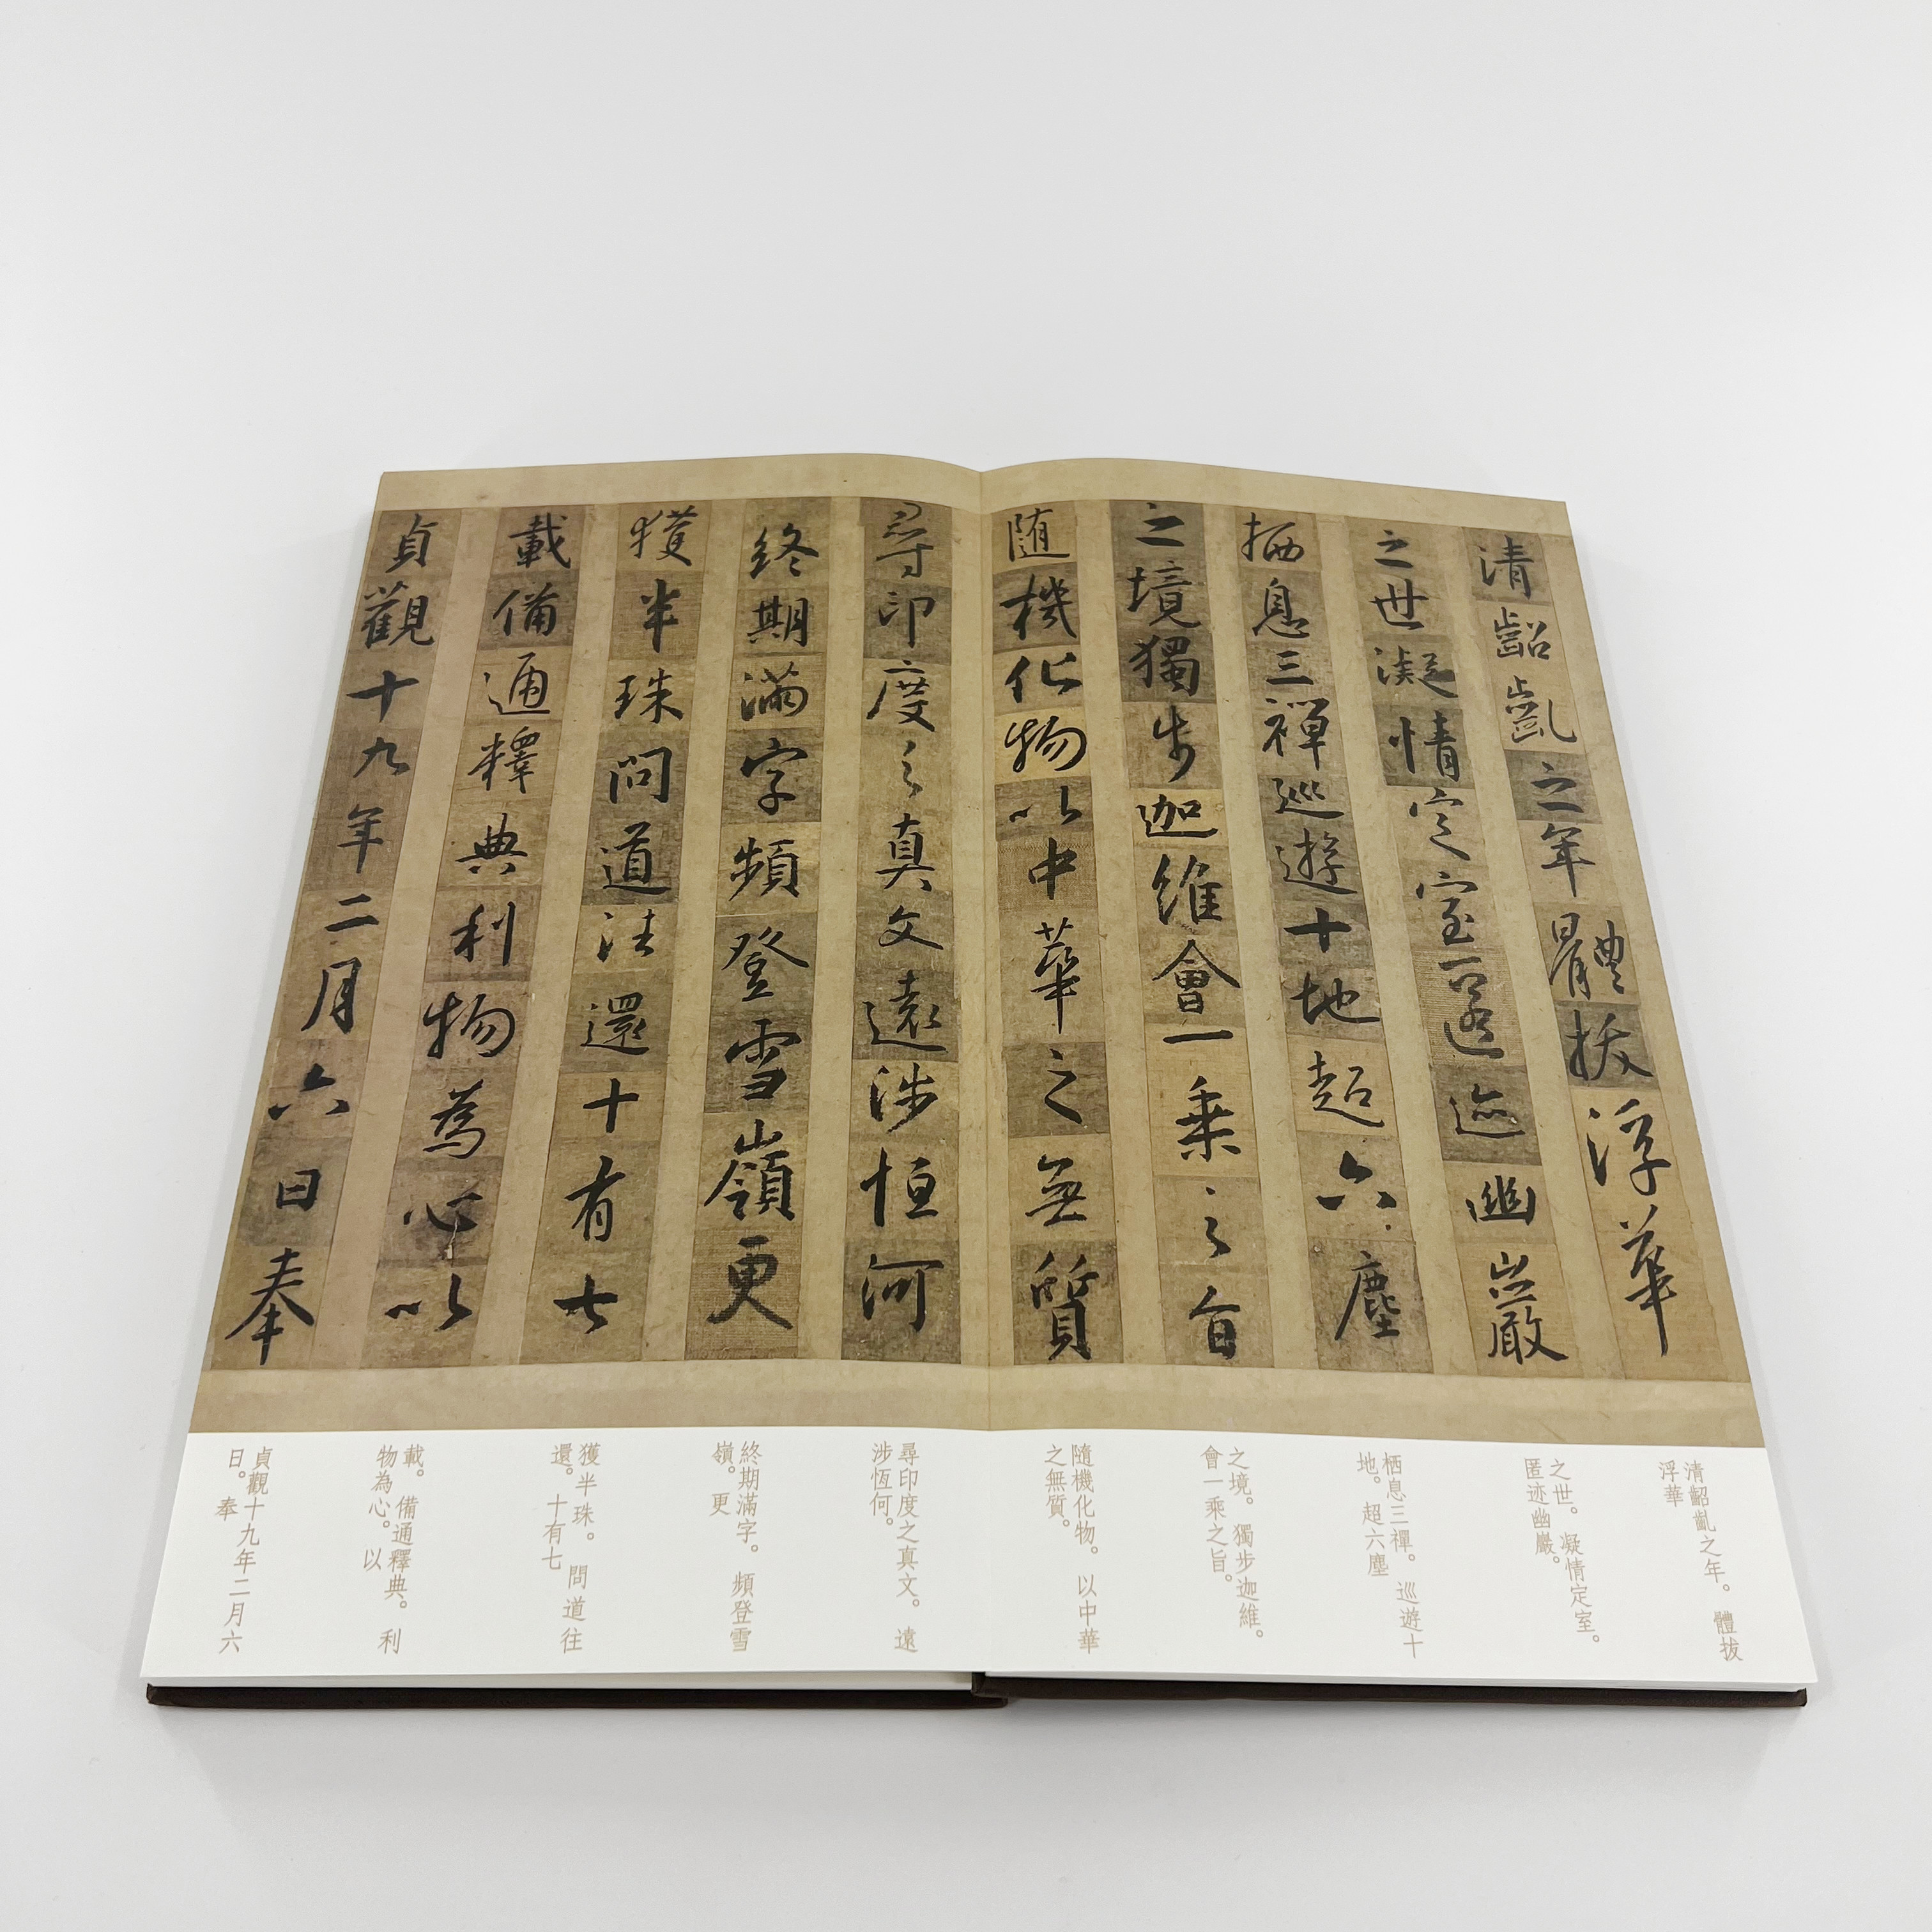 清齠齓之年體拔浮華
之世凝情定室匿迹幽巖
栖息三禪巡遊十地超六塵
之境獨步迦維會一乘之旨
隨機化物以中華之無質
尋印度之真文遠涉恒河
終期滿字頻登雪嶺更
獲半珠問道往還十有七
載備通釋典利物為心以
貞觀十九年二月六日奉
清齠齓之年。體拔
浮華
之世。凝情定室。
匿迹幽巖。
栖息三禪。巡遊十
地。超六塵
之境。獨步迦維。
會一乘之旨。
隨機化物。以中華
之無質。
尋印度之真文。遠
涉恆何。
終期滿字。頻登雪
嶺。更
獲半珠。問道往
還。十有七
載。備通釋典。利
物為心。以
貞觀十九年二月六
日。奉